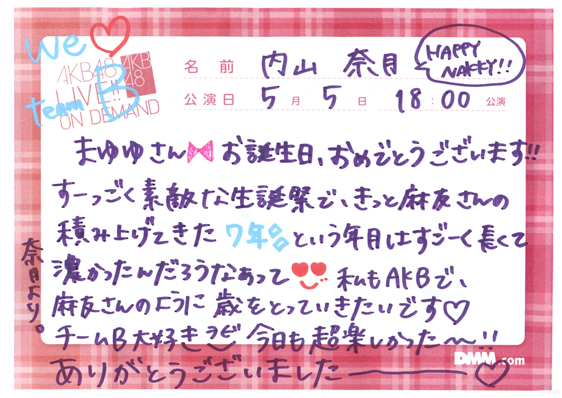 We♡
team B
AKB48
LIVE!!
ON DEMAND
AKB
48
名前 内山 奈月
HAPPY
NAKKY!!
公演日 5月 5日 18:00 公演
まゆゆさん お誕生日、おめでとうございます!!
すーっごく素敵な生誕祭で、きっと麻友さんの
積み上げてきた 7年目 という年月はすごーく長くて
濃かったんだろうなあって 私もAKBで、
麻友さんのように 歳をとっていきたいです♡
チームB大好き 今日も超楽しかった〜!!
ありがとうございました――♡
奈月より。
DMM.com